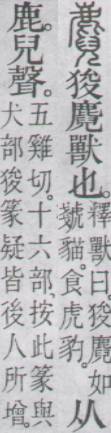 麑 狻麑獸也。
釋獸曰。狻麑如
虦貓。食虎豹。
从
鹿兒聲。
五雞切。十六部。按此篆與
犬部狻篆疑皆後人所增。